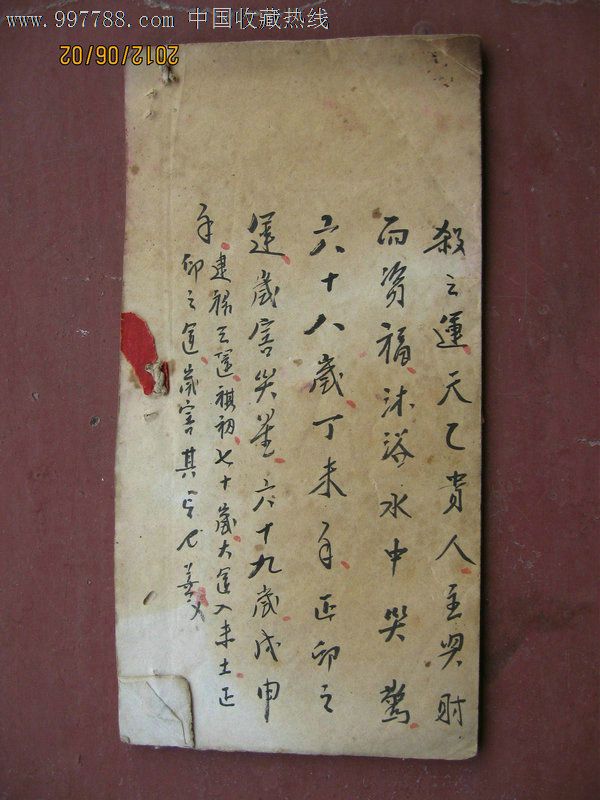 www.997788.com 中国收藏热线
2012/06/02
殺之運天乙貴人主財
而資福沐浴水中哭驚
六十八歲丁未年正印之
運歲害哭星六十九歲戊申
年
建祿之運七十歲大運入未土正
印之運歲害其